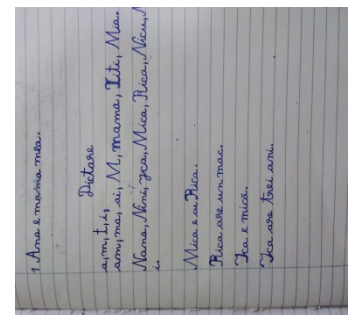 1. Ana e mama mea.
Dictare
a, m, t, i,
am, ma, ai, M, mama, Titi, Mia.
Nana, Nini, Ica, Mica, Rica, Nicu,
i.
Mica e cu Rica.
Rica are un mac.
Ica e mică.
Ica are trei ani.